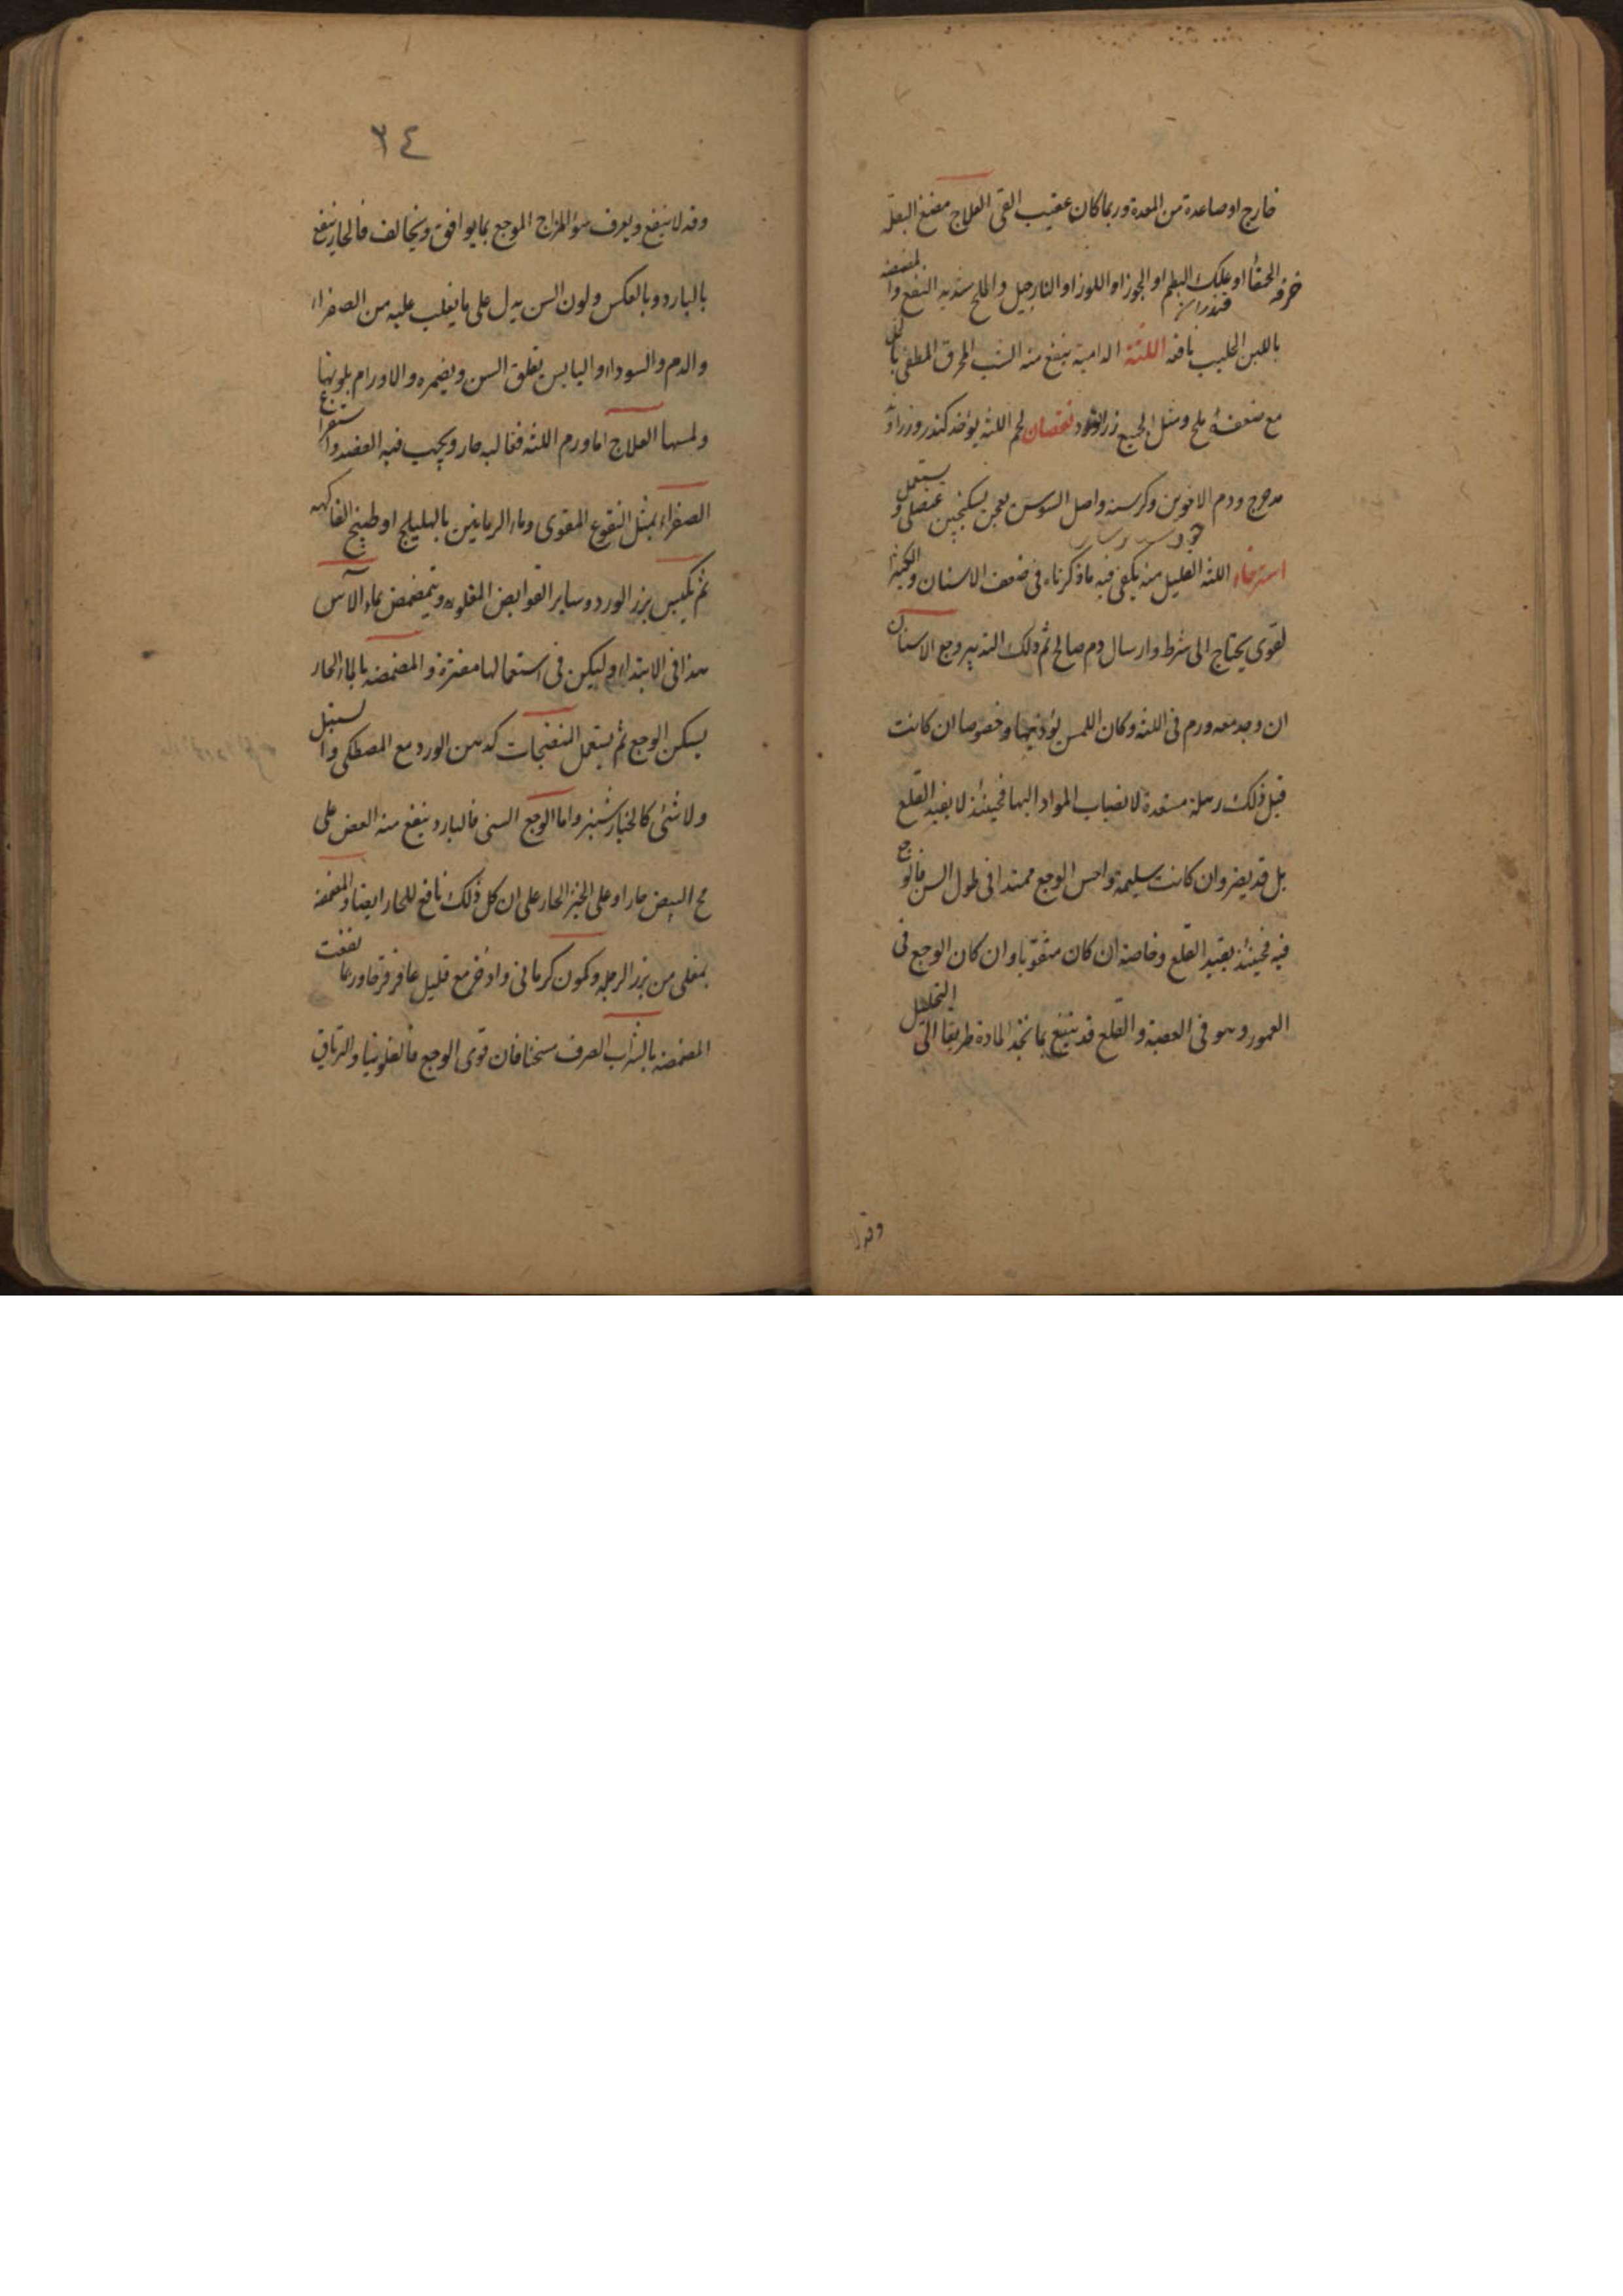 خارج او صاعدة من المعدة وربما كان عقيب القى العلاج مضغ البقلة
الحمقا او علك البطم او الجوز او اللوز او النارجيل والملح شديد النفع والمضمضة
خرفه
باللبن الحليب نافعة اللثة الدامية ينفع منه الشب المحرق المطفى بالخل
مع ضعفه ملح ومثل الجميع زر الورد نقصان لحم اللثة يؤخذ كندر وزراوند
مدحرج ودم الاخوين وكرسنه واصل السوسن يعجن بسكنجبين عنصلى ويستعمل
استرخاء اللثه القليل منه يكفى فيه ما ذكرناه فى ضعف الاسنان والكثير
لقوى يحتاج الى شرط وارسال دم صالح ثم ذلك التدبير وجع الاسنان
ان وجد معه ورم فى اللثه وكان اللمس يؤذيها وخصوصا ان كانت
قبل ذلك رهلة مستعدة لانصباب المواد اليها فحينئذ لا يفيد القلع
بل قد يضر وان كانت سليمة واحس الوجع ممتدا فى طول السن فالوجع
فيه فحينئذ يفيد القلع وخاصة ان كان مثقوبا وان كان الوجع فى
العمور وهو فى العصبة والقلع قد ينفع بما تجد المادة طريقا الى التحليل
وقد لا
٣٤
وقد لا ينفع ويعرف سؤ المزاج الموجع بما يوافق ويخالف فالحار ينفع
بالبارد وبالعكس ولون السن يدل على ما يغلب عليه من الصفراء
والدم والسوداء واليابس يقلق السن ويضمره والاورام بلونها
ولمسها العلاج اما ورم اللثه فغالبه حار ويجب فيه الفصد واستفراغ
الصفراء بمثل النقوع المقوى وماء الرمانين بالهليلج او طبيخ الفاكهه
ثم يكبس ببزر الورد وساير القوابض المقلوه ويتمضمض بماء الآس
هذا فى الابتداء وليكن فى استعمالها مفترة والمضمضه بالماء الحار
يسكن الوجع ثم يستعمل المنضجات كدهن الورد مع المصطكى والسنبل
ولا شئ كالخيار شنبر واما الوجع السنى فالبارد ينفع منه العض على
مح البيض حارا وعلى الخبز الحار على ان كل ذلك نافع للحار ايضا والمضمضة
بمغلى من بزر الرجله وكمون كرمانى واذخر مع قليل عاقر قرحا وربما نفعت
المضمضه بالشراب الصرف مسخنا فان قوى الوجع فالفلونيا والترياق